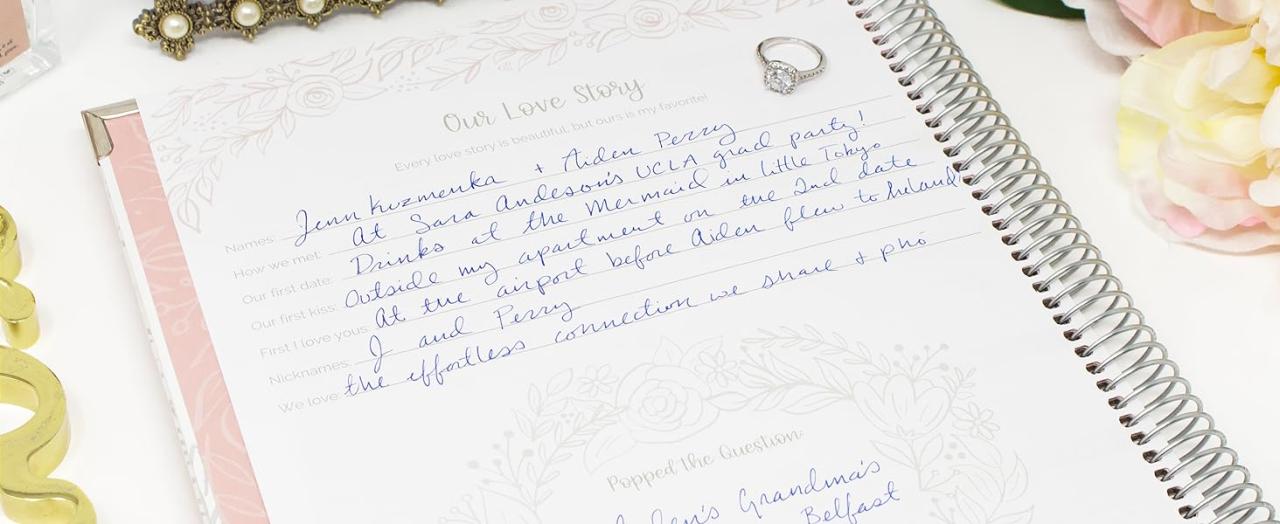 Our Love Story
Every love story is beautiful, but ours is my favorite!
Names: Jenn Kuzmenka + Aiden Perry
How we met: At Sara Andeson's UCLA grad party!
Our first date: Drinks at the Mermaid in little Tokyo
Our first kiss: Outside my apartment on the 2nd date
First I love yous: At the airport before Aiden flew to Ireland
Nicknames: J and Perry
We love: the effortless connection we share + pho
Popped the Question:
Grandma's
Belfast